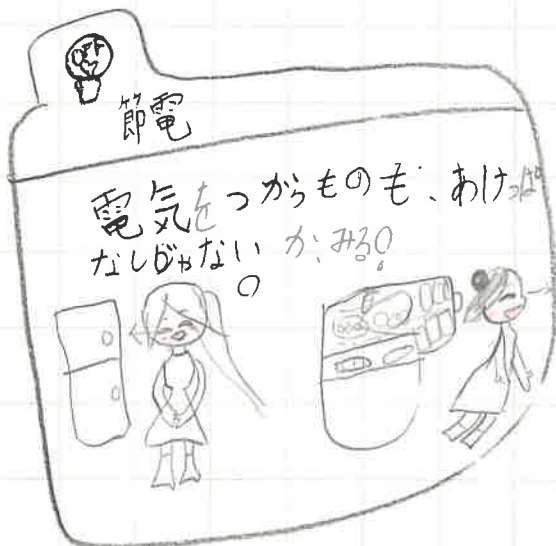 OFF
節電
電気をつからものも、あけっぱ
なしじゃないか、みる!